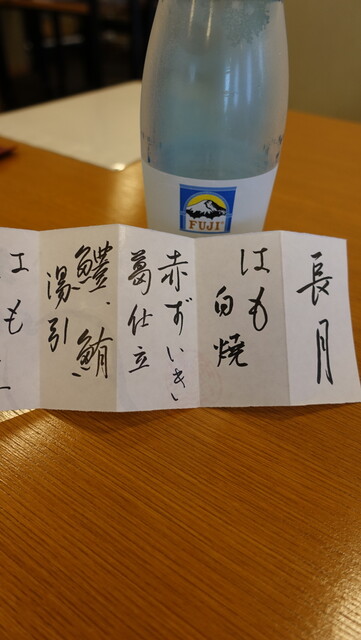 長月
はも
白焼
赤ずいき
葛仕立
鱧、鮪
湯引
はも
FUJI